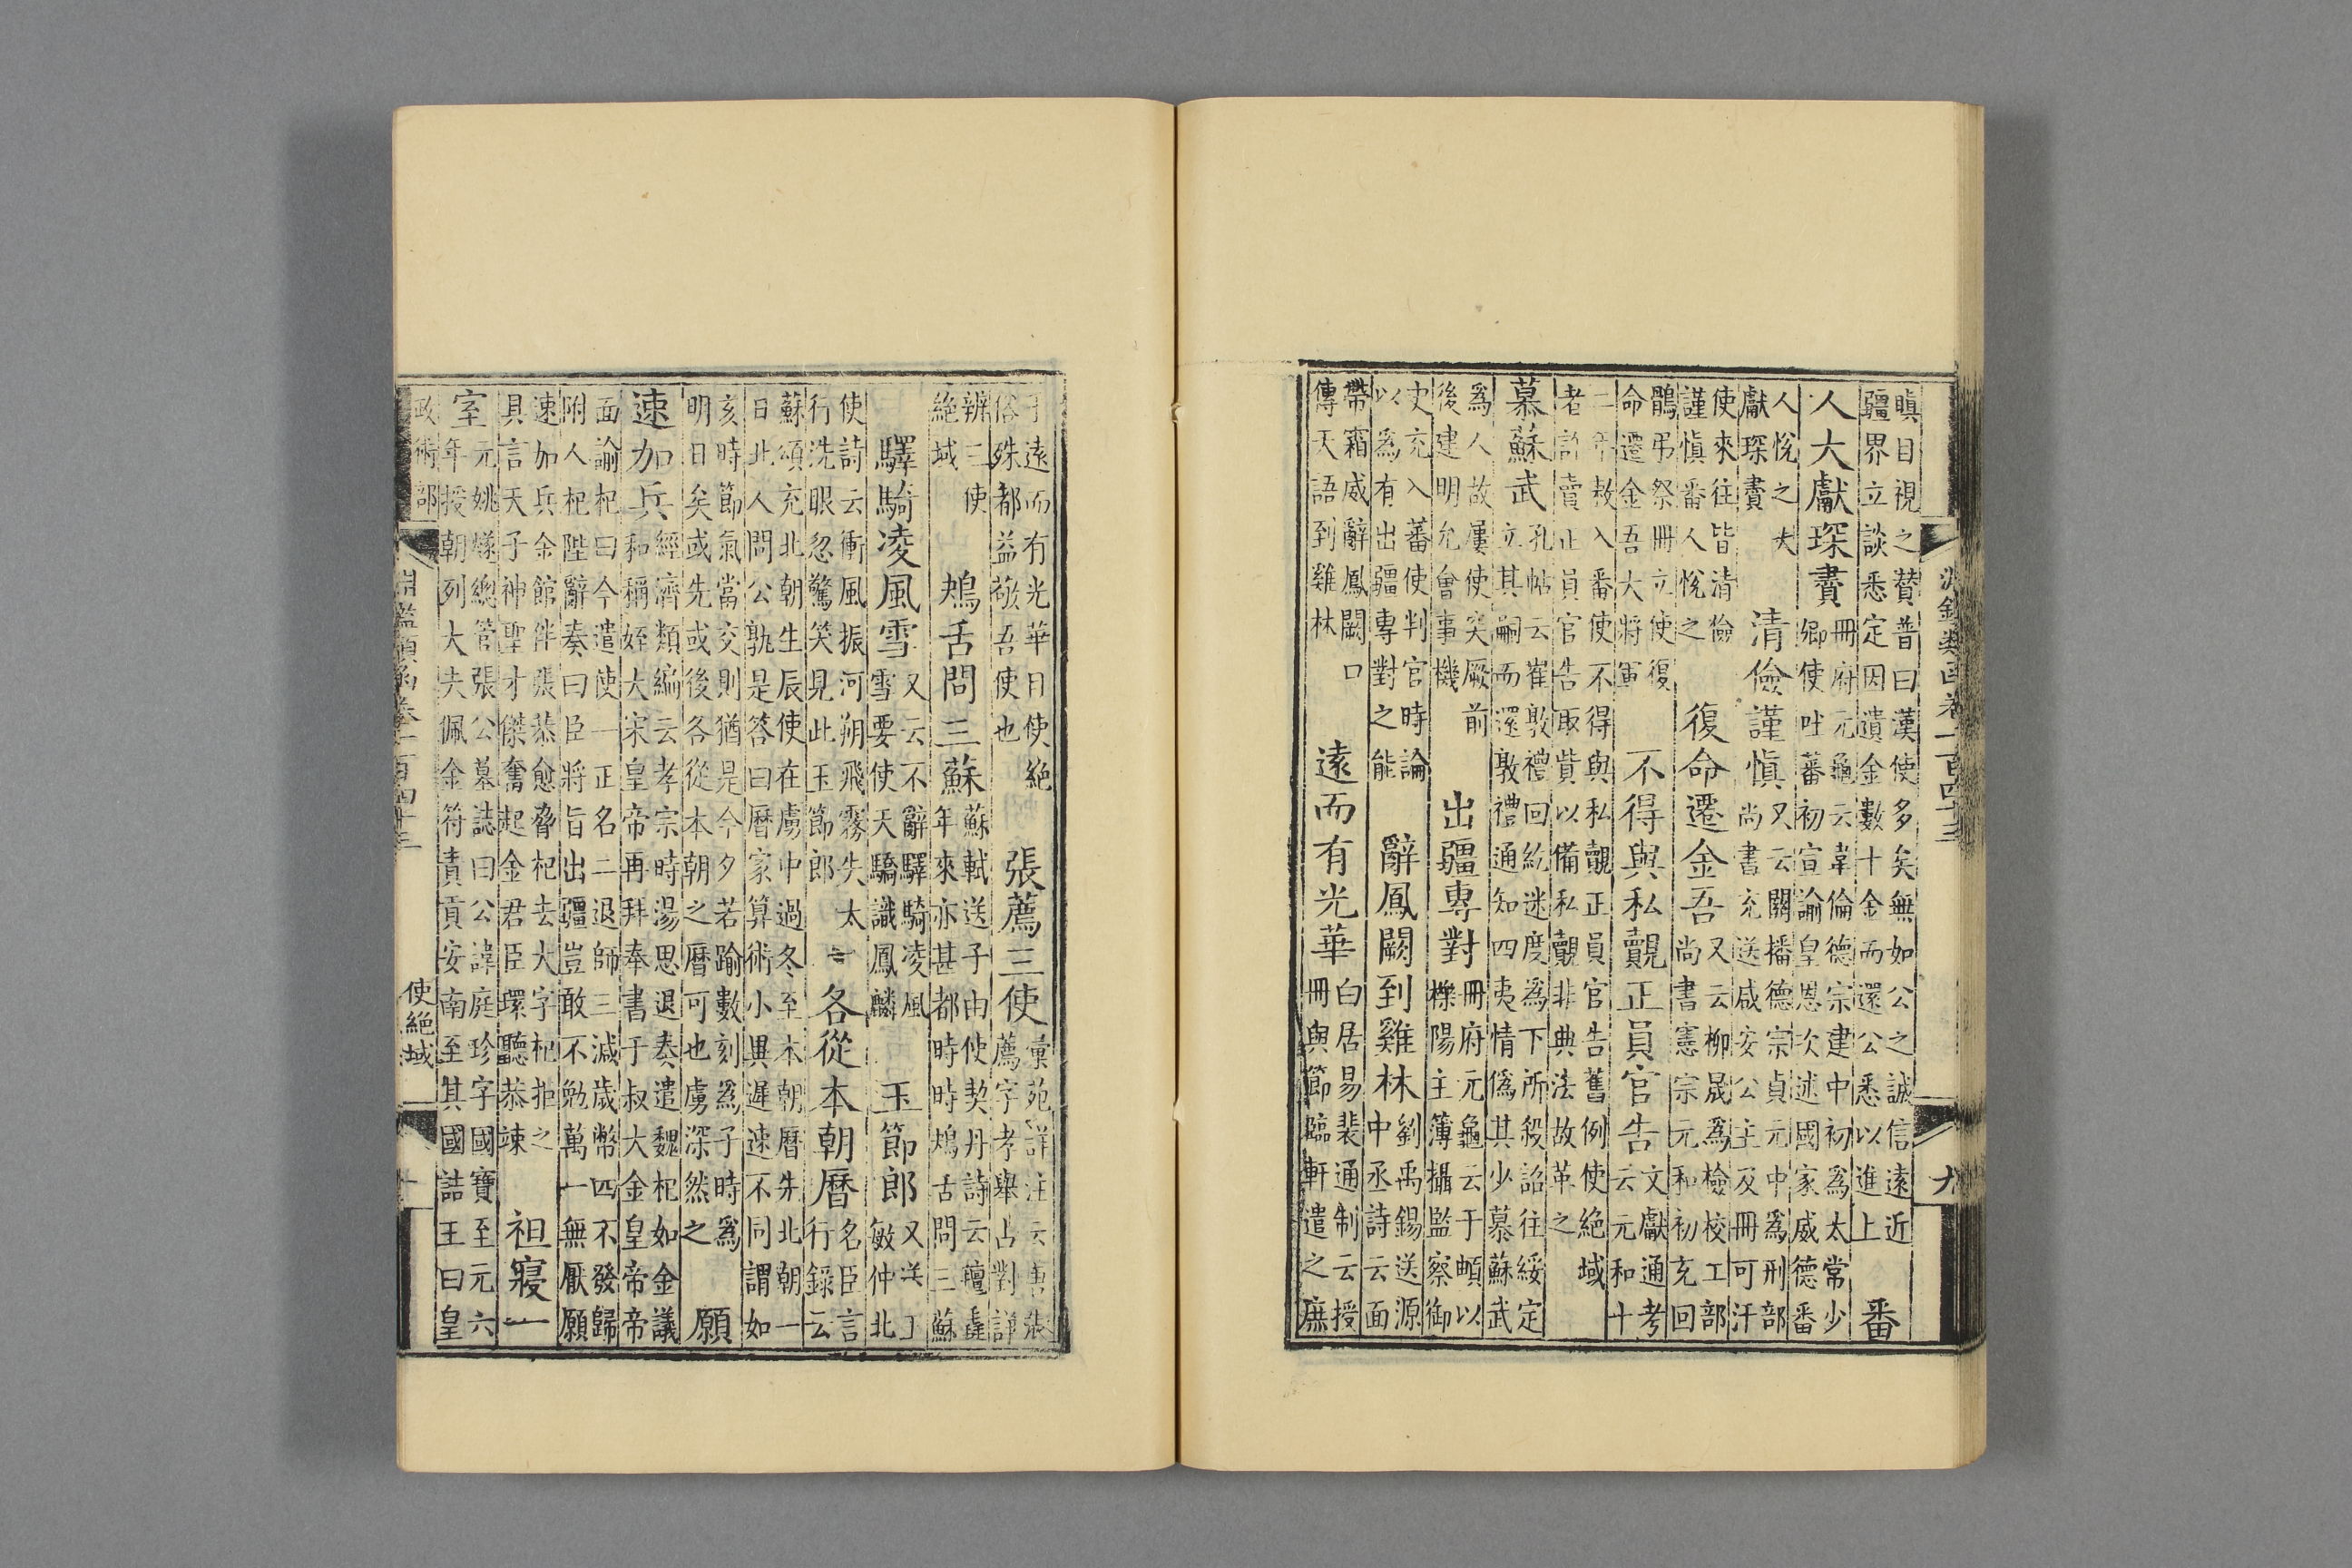 淵鑑類函卷一百四十三
九
瞋目視之贊普曰漢使多矣無如公之誠信遠近
疆界立談悉定因遺金數十金而還公悉以進上
番
人大獻琛賮
冊府元龜云韋倫德宗建中初爲太常少
卿使吐蕃初宣諭皇恩次述國家威德番
人悅之大
獻琛賮
清儉謹慎
又云關播德宗貞元中爲刑部
尚書充送咸安公主及冊可汗
使來往皆清儉
謹慎番人悅之
復命遷金吾
又云柳晟爲檢校工部
尚書憲宗元和初充回
鶻弔祭冊立使復
命遷金吾大將軍
不得與私覿正員官告
文獻通考
云元和十
二年敕入番使不得與私覿正員官告舊例使絕域
者許賣正員官告取貲以備私覿非典法故革之
慕蘇武
孔帖云崔敦禮回紇迷度爲下所殺詔往綏定
立其嗣而還敦禮通知四夷情僞其少慕蘇武
爲人故屢使突厥前
後建明允會事機
出疆專對
冊府元龜云于頔以
櫟陽主簿攝監察御
史充入蕃使判官時論
以爲有出疆專對之能
辭鳳闕到雞林
劉禹錫送源
中丞詩云面
帶霜威辭鳳闕口
傳天語到雞林
遠而有光華
白居易裴通制云授
冊與節臨軒遣之庶
于遠而有光華日使絕
俗殊都益敬吾使也
張薦三使
彙苑詳注云唐張
薦字孝舉占對詳
辨三使
絕域
鴂舌問三蘇
蘇軾送子由使契丹詩云氊毳
年來亦甚都時時鴂舌問三蘇
驛騎凌風雪
又云不辭驛騎凌風
雪要使天驕識鳳麟
玉節郎
又送丁
敏仲北
使詩云衝風振河朔飛霧失太
行洗眼忽驚笑見此玉節郎
各從本朝曆
名臣言
行錄云
蘇頌充北朝生辰使在虜中過冬至本朝曆先北朝一
日北人問公孰是答曰曆家算術小異遲速不同謂如
亥時節氣當交則猶是今夕若踰數刻爲子時爲
明日矣或先或後各從本朝之曆可也虜深然之
願
速加兵
經濟類編云孝宗時湯思退奏遣魏杞如金議
和稱姪大宋皇帝再拜奉書于叔大金皇帝帝
面諭杞曰今遣使一正名二退師三減歲幣四不發歸
附人杞陛辭奏曰臣將旨出疆豈敢不勉萬一無厭願
速加兵金館伴張恭愈脅杞去大字杞拒之
具言天子神聖才傑奮起金君臣環聽恭竦
袒寢一
室
元姚燧總管張公墓誌曰公諱庭珍字國寶至元六
年授朝列大夫佩金符責貢安南至其國詰王曰皇
政術部
淵鑑類函卷一百四十三
使絕域